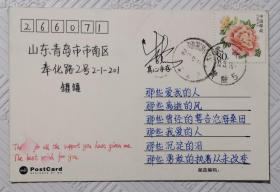 266071
山东青岛市市南区
奉化路2号2-1-201
镨镨
那些爱我的人
那些离逝的风
那些曾经的誓言也海桑田
那些我爱的人
那些沉淀的泪
那些勇敢的执着从未改变
Thanks for all the support you have given me.
The best wish for you
PostCard
邮政编码: